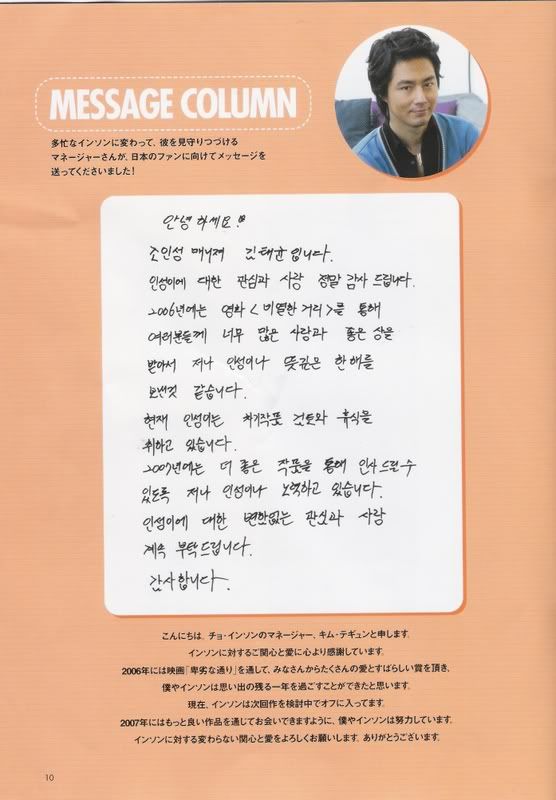 MESSAGE COLUMN
多忙なインソンに変わって、彼を見守りつづける
マネージャーさんが、日本のファンに向けてメッセージを
送ってくださいました！
안녕하세요!
조인성 매니져 김태균입니다.
인성이에 대한 관심과 사랑 정말 감사 드립니다.
2006년에는 영화 <비열한 거리>를 통해
여러분들께 너무 많은 사랑과 좋은 상을
받아서 저나 인성이나 뜻깊은 한 해를
보낸것 같습니다.
현재 인성이는 차기작품 검토와 휴식을
취하고 있습니다.
2007년에는 더 좋은 작품을 통해 인사드릴수
있도록 저나 인성이나 노력하고 있습니다.
인성이에 대한 변함없는 관심과 사랑
계속 부탁드립니다.
감사합니다.
こんにちは。チョ・インソンのマネージャー、キム・テギュンと申します。
インソンに対するご関心と愛に心より感謝しています。
2006年には映画「卑劣な通り」を通して、みなさんからたくさんの愛とすばらしい賞を頂き、
僕やインソンは思い出の残る一年を過ごすことができたと思います。
現在、インソンは次回作を検討中でオフに入ってます。
2007年にはもっと良い作品を通じてお会いできますように、僕やインソンは努力しています。
インソンに対する変わらない関心と愛をよろしくお願いします。ありがとうございます。
10